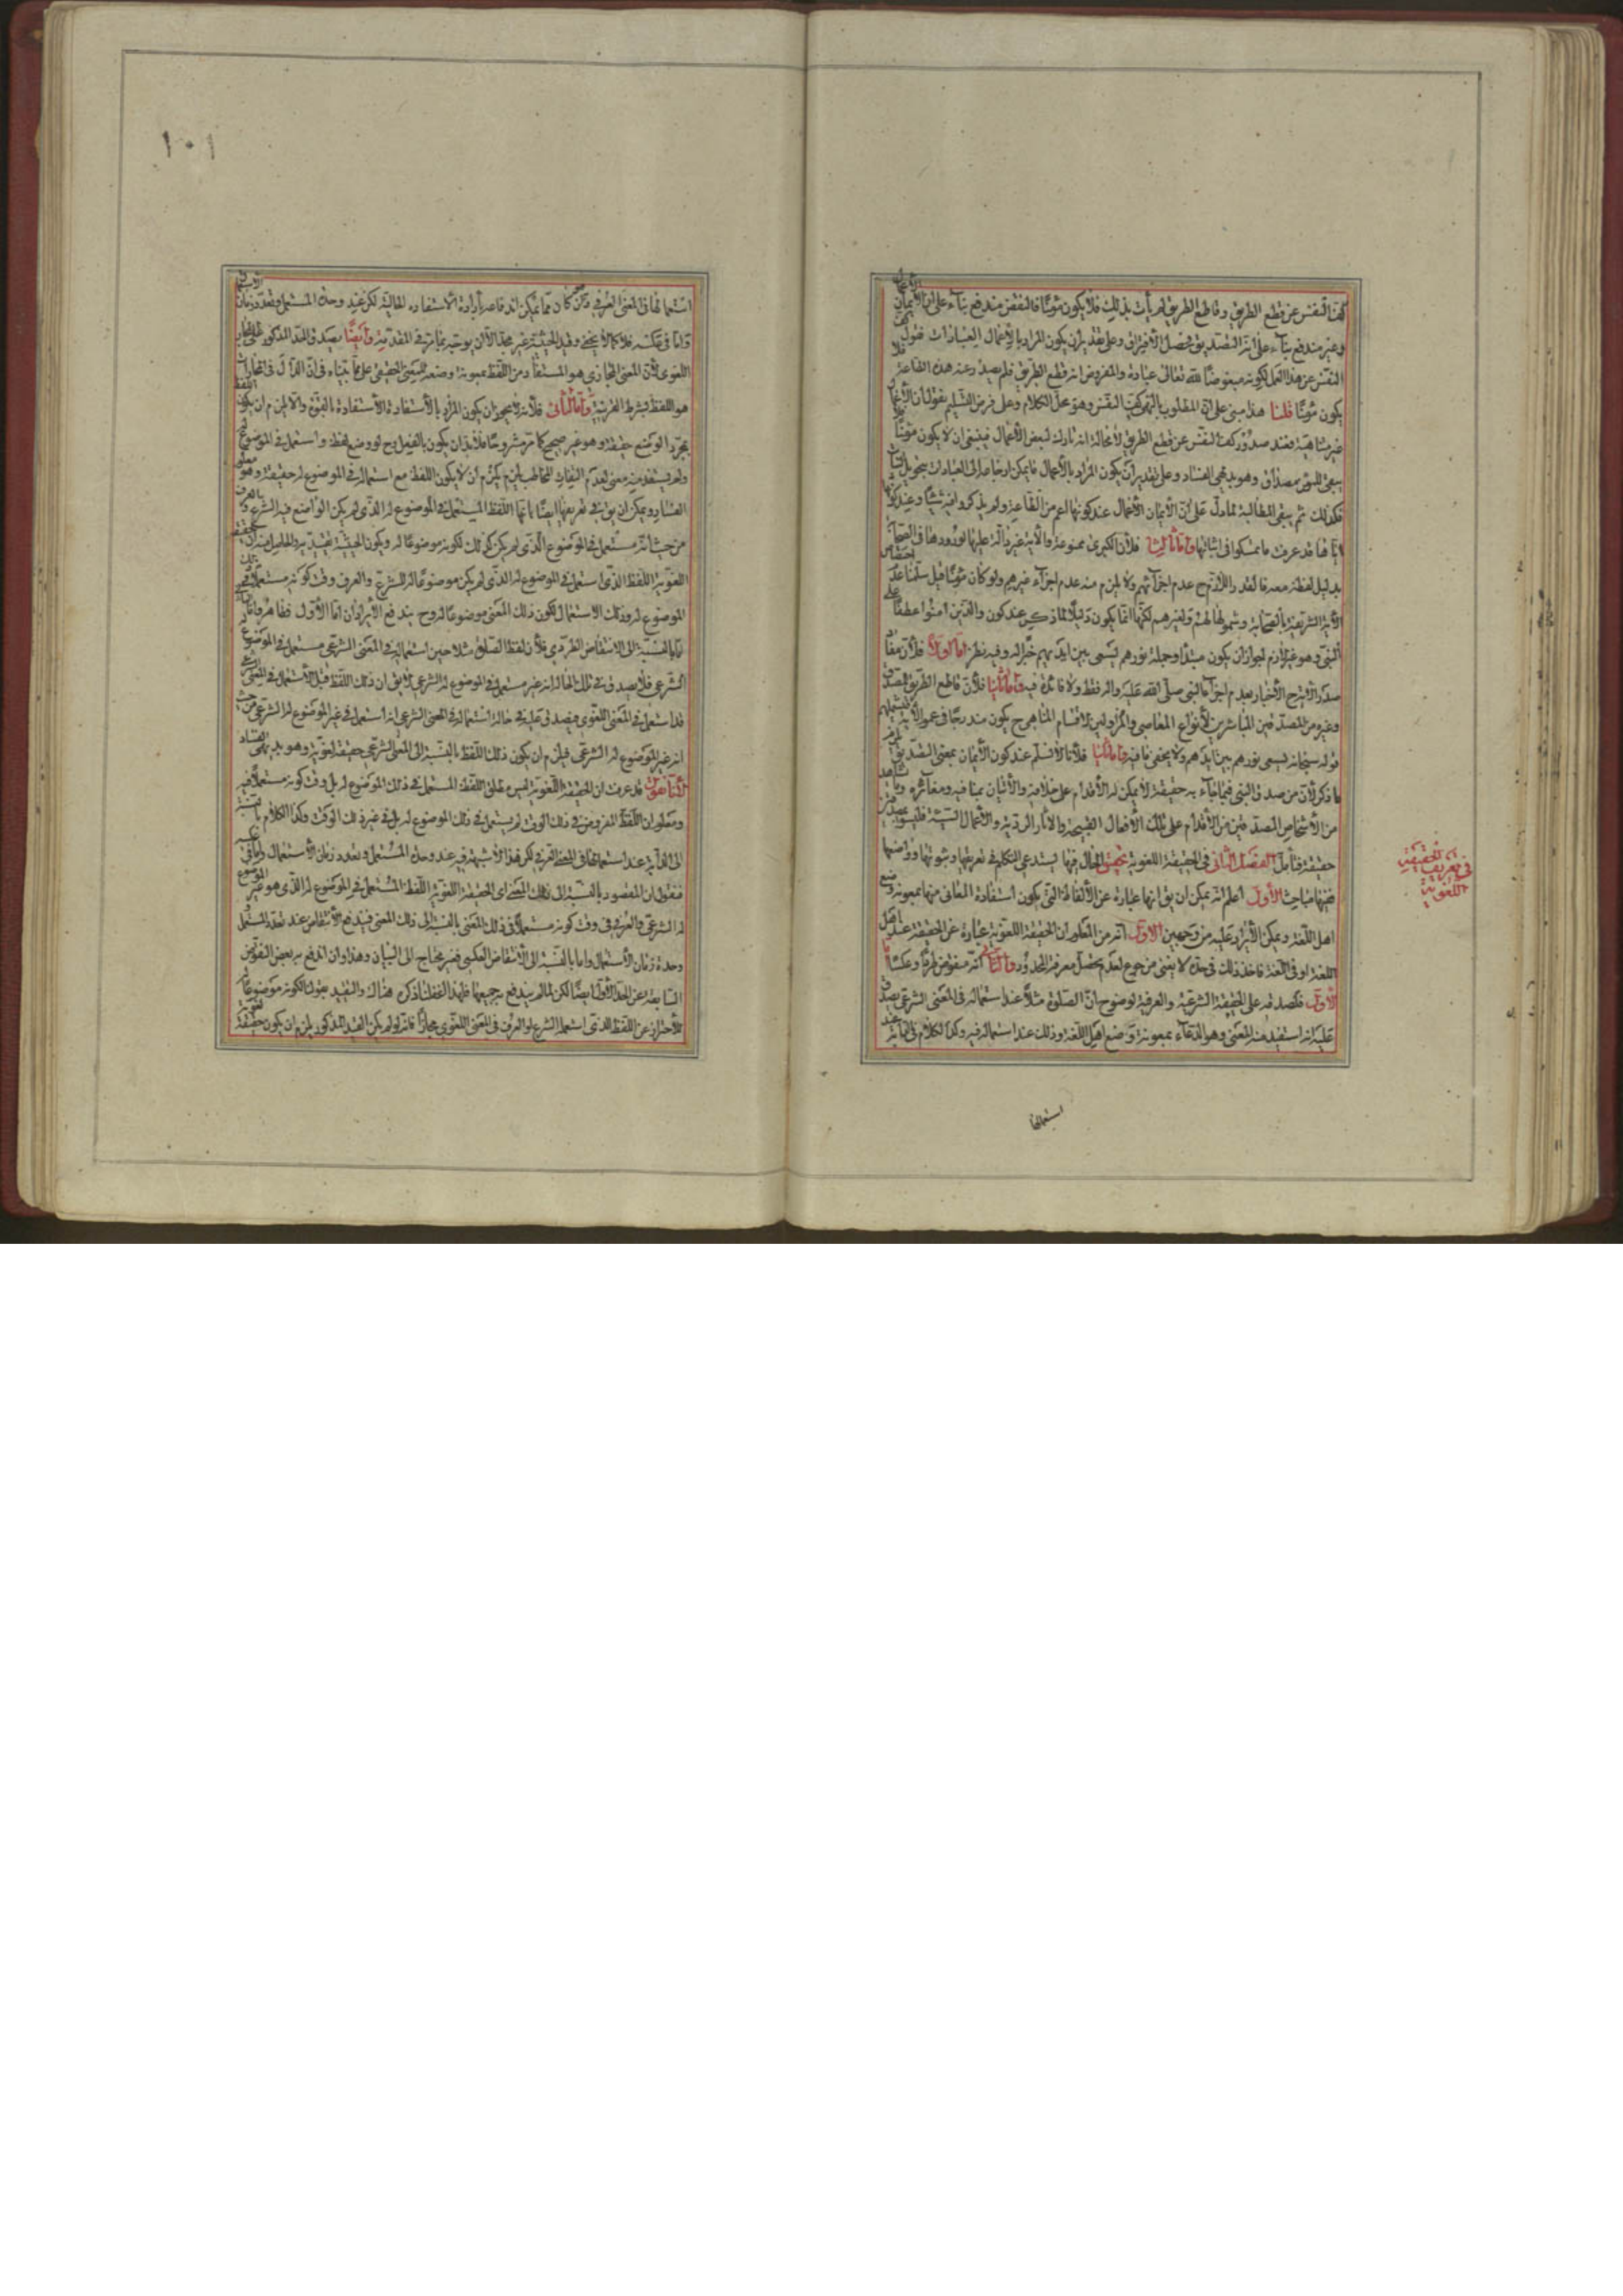 كف النفس عن قطع الطريق وقاطع الطريق لم يأت بذلك فلا يكون مؤمنًا فالنقض مندفع بناء على ان الأيمان
وغيره مندفع بناء على انه التصديق
النفس عن هذا العمل لكونه مبغوضًا لله تعالى عبادة والمفروض انه قطع الطريق فلم يصدر عنه هذه الطاعة فلا
يكون مؤمنًا قلنا هذا مبنى على ان المطلوب بالنهى كف النفس وهو محل الكلام وعلى فرض التسليم نقول ان الأعمال
غير متناهية فعند صدور كف النفس عن قطع الطريق لا محالة انه تارك لبعض الأعمال فينبغى ان لا يكون مؤمنًا فلا
يبقى للمؤمن مصداق وهو بديهى الفساد وعلى تقدير ان يكون المراد بالأعمال
فكذلك ثم يبقى المطالبة لما دل على ان الأيمان الأعمال عند كونها اعم من الطاعة ولم يذكروا فيه شيئًا
قد عرفت ما تمسكوا فى اثباتها واما ثالثا فلأن الكبرى ممنوعة والآية غير دالة عليها لورودها فى الصحابة
بدليل لفظة معه فالقدر اللازم ح عدم اخزائهم ولا يلزم منه عدم اخزاء غيرهم ولو كان مؤمنًا قيل سلمنا عدم اختصاص
الآية الشريفة بالصحابة وشمولها لهم ولغيرهم لكنها انما يكون دليلًا لما ذكر عند كون والذين امنوا عطفًا على
النبى وهو غير لازم لجواز ان يكون مبتدا وجملة نورهم يسعى بين ايديهم خبرًا له وفيه نظر اما اولا فلأن مفاد
صدر الآية ح الأخبار بعدم اخزاء النبى صلى الله عليه واله فقط ولا فائدة فيه واما ثانيا فلأن قاطع الطريق المصدق
وغيره من المصدقين المباشرين لأنواع المعاصى والمزاولين لأقسام المناهى ح يكون مندرجًا فى عموم الآية فيشملهم
قوله سبحانه يسعى نورهم بين ايديهم ولا يخفى ما فيه واما ثالثا فلأنا لا نسلم عند كون الأيمان بمعنى التصديق
ما ذكر لأن من صدق النبى فيما جاء به حقيقة لا يمكن له الأقدام على خلافه والأتيان بما ينافيه ومغائره وما نشاهد
من الأشخاص المصدقين من الأقدام على تلك الأفعال القبيحة والاثار الردية والأعمال السيئة فليسوا بمصدقين
حقيقة فتأمل الفصل الثانى فى الحقيقة اللغوية تحقيق الحال فيها يستدعى التكلم فى تعريفها وثبوتها وواضعها
ففيها مباحث الأول اعلم انه يمكن ان يق انها عبارة عن الألفاظ التى يكون استفادة المعانى منها بمعونة وضع
اهل اللغة ويمكن الأيراد عليه من وجهين الأول انه من المعلوم ان الحقيقة اللغوية عبارة عن الحقيقة عند اهل
اللغة او فى اللغة فاخذ ذلك فى حده لا يغنى من جوع لعدم تحصل معرفة المحدود والثانى انه منقوض طردًا وعكسًا اما
الأول فلصدقه على الحقيقة الشرعية والعرفية لوضوح ان الصلوة مثلًا عند استعماله فى المعنى الشرعى يصدق
عليه انه استفيد منه المعنى وهو الدعاء بمعونة وضع اهل اللغة وذلك عند استعماله فيه وكذا الكلام فى الدابة عند
استعمالها
فى تعريف الحقيقة
اللغوية
١٠١
استعمالها فى المعنى العرفى وان كان مما يمكن
واما فى عكسه فلما لا يخفى وقيد الحيثية غير مجد الا ان يوجه بما مر فى المقدمة وايضًا يصدق الحد المذكور على المجاز
اللغوى لأن المعنى المجازى هو المستفاد من اللفظ بمعونة وضعه للمعنى الحقيقى على ما بيناه فى ان الدال فى المجازات
هو اللفظ بشرط القرينة واما الثانى فلأنه لا يجوز ان يكون المراد بالأستفادة الأستفادة بالقوة والا لزم ان يكون اللفظ
بمجرد الوضع حقيقة وهو غير صحيح كما مر مشروحًا فلا بد ان يكون بالفعل وح لو وضع لفظ واستعمل فى الموضوع له
ولم يستفد منه معنى لعدم التفات المخاطب يلزم ان لا يكون اللفظ مع استعماله فى الموضوع له حقيقة وهو معلوم
الفساد ويمكن ان يق فى تعريفها ايضًا بانها اللفظ المستعمل فى الموضوع له الذى لم يكن الواضع فيه الشرع والعرف
من حيث انه مستعمل فى الموضوع الذى لم يكن كذلك لكونه موضوعًا له ويكون الحيثية تقييدية والحاصل منه ان الحقيقة
اللغوية اللفظ الذى استعمل فى الموضوع له الذى لم يكن موضوعًا له للشرع والعرف وقت كونه مستعملًا فى ذلك
الموضوع له وذلك الاستعمال لكون ذلك المعنى موضوعًا له وح يندفع الأيرادان اما الأول فظاهر واما الثانى
اما بالنسبة الى الانتقاض الطردى فلأن لفظ الصلوة مثلا حين استعماله فى المعنى الشرعى مستعمل فى الموضوع له
الشرعى فلا يصدق فى تلك الحالة انه غير مستعمل فى الموضوع له الشرعى لا يق ان ذلك اللفظ قبل الأستعمال فى المعنى الشرعى
قد استعمل فى المعنى اللغوى فيصدق عليه فى حالة استعماله فى المعنى الشرعى انه استعمل فى غير الموضوع له الشرعى من حيث
انه غير الموضوع له الشرعى فيلزم ان يكون ذلك اللفظ بالنسبة الى المعنى الشرعى حقيقة لغوية وهو بديهى الفساد
لأنا نقول قد عرفت ان الحقيقة اللغوية ليس مطلق اللفظ المستعمل فى ذلك الموضوع له بل وقت كونه مستعملًا فيه
ومعلوم ان اللفظ المفروض فى ذلك الوقت لم يستعمل فى ذلك الموضوع له بل فى غير ذلك الوقت وكذا الكلام بالنسبة
الى الدابة عند استعمالها فى المعنى العرفى لكن هذا لا شبهة فيه عند وحدة المستعمل وتعدد زمان الأستعمال واما فى عكسه
فنقول ان المقصود بالنسبة الى ذلك المعنى اى الحقيقة اللغوية اللفظ المستعمل فى الموضوع له الذى هو غير الموضوع
له الشرعى والعرفى وقت كونه مستعملًا فى ذلك المعنى بالنسبة الى ذلك المعنى فيندفع الأنتقاض عند تعدد المستعمل
ووحدة زمان الأستعمال واما بالنسبة الى الأنتقاض العكسى فغير محتاج الى البيان وهذا وان اندفع به بعض النقوض
السابقة عن الحد الأول ايضًا لكن لما لم يندفع به جميعها فلهذا اغفلنا ذكره هناك والتقييد بقولنا لكونه موضوعًا له
للأحتراز عن اللفظ الذى استعمله الشرع او العرف فى المعنى اللغوى مجازًا فانه لو لم يكن القيد المذكور لزم ان يكون حقيقة لغوية